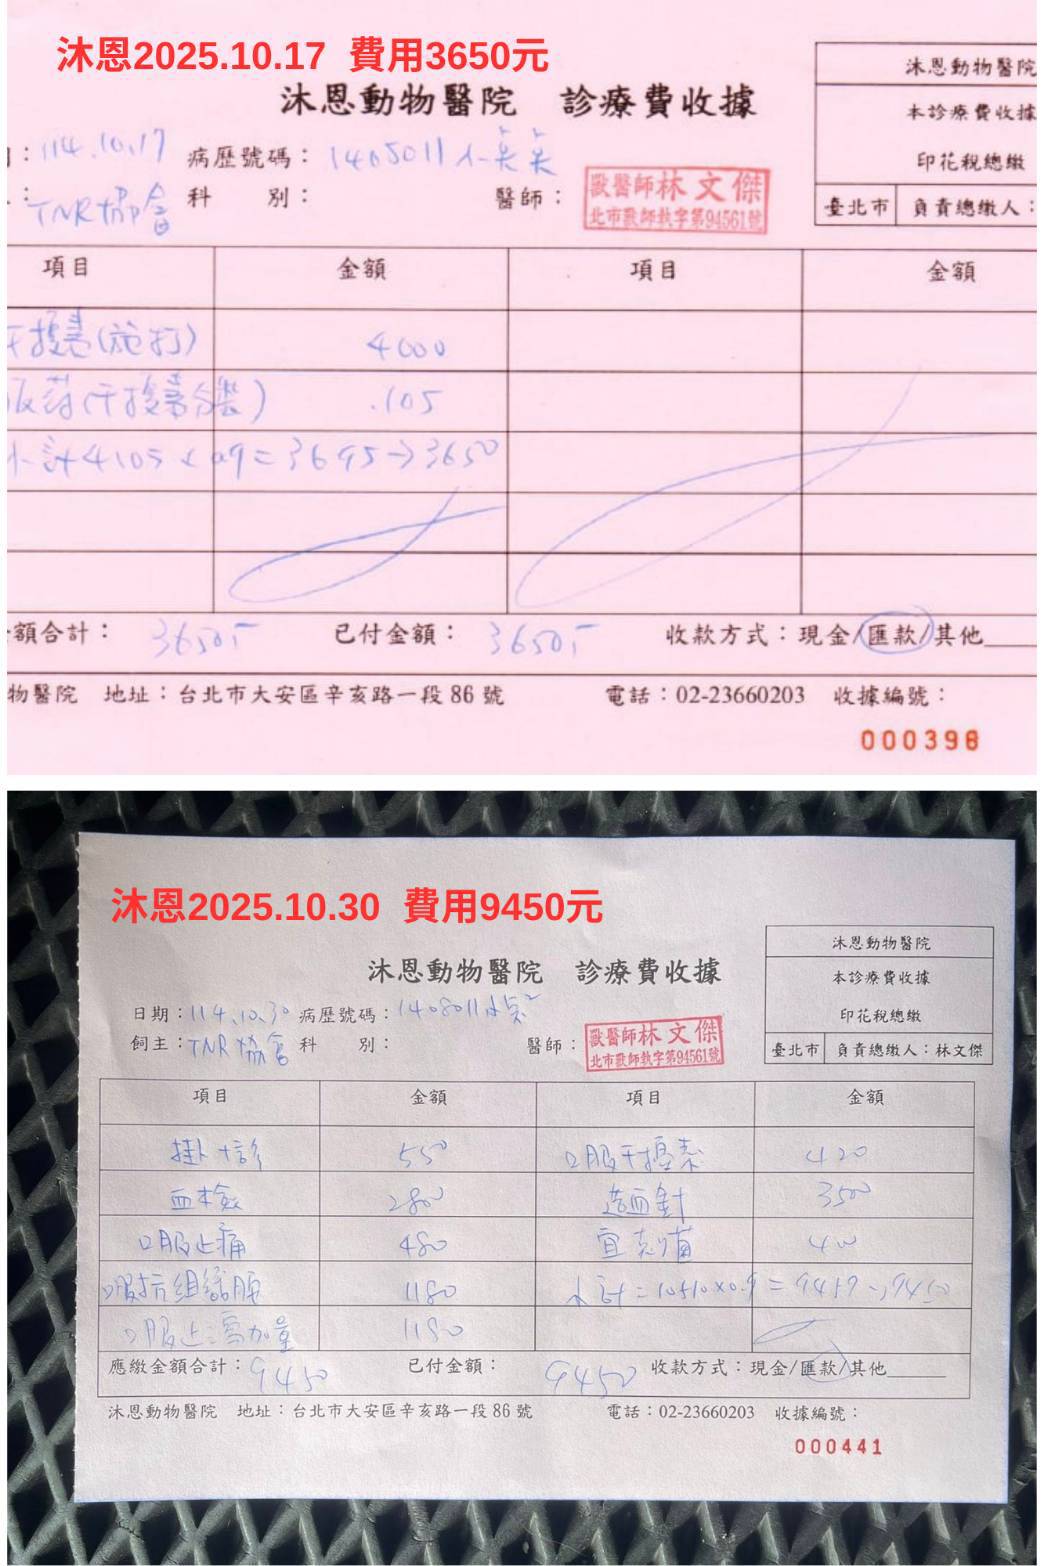 沐恩2025.10.17 費用3650元
沐恩動物醫院 診療費收據
沐恩動物醫院
本診療費收據
印花稅總繳
臺北市 負責總繳人:
:114.10.17 病歷號碼:
TNR協會 科 別: 醫師:
獸醫師林文傑
北市獸師執字第94561號
項目 金額 項目 金額
干擾素(施打) 4000
服药(干擾素分裝) 105
小計4105×0.9=3695→3650
額合計: 3650 已付金額: 3650 收款方式:現金/匯款/其他
物醫院 地址:台北市大安區辛亥路一段86號 電話:02-23660203 收據編號:
000398
沐恩2025.10.30 費用9450元
沐恩動物醫院 診療費收據
沐恩動物醫院
本診療費收據
印花稅總繳
臺北市 負責總繳人:林文傑
日期:114.10.30 病歷號碼:1408011
飼主:TNR協會 科 別: 醫師:
獸醫師林文傑
北市獸師執字第94561號
項目 金額 項目 金額
掛+診 550 口服干擾素 420
血檢 2800 造血針 3500
口服止痛 480 400
口服抗組織胺 1180 小計=10510×0.9=9459→9450
口服止瀉加量 1180
應繳金額合計:9450 已付金額:9450 收款方式:現金/匯款/其他
沐恩動物醫院 地址:台北市大安區辛亥路一段86號 電話:02-23660203 收據編號:
000441